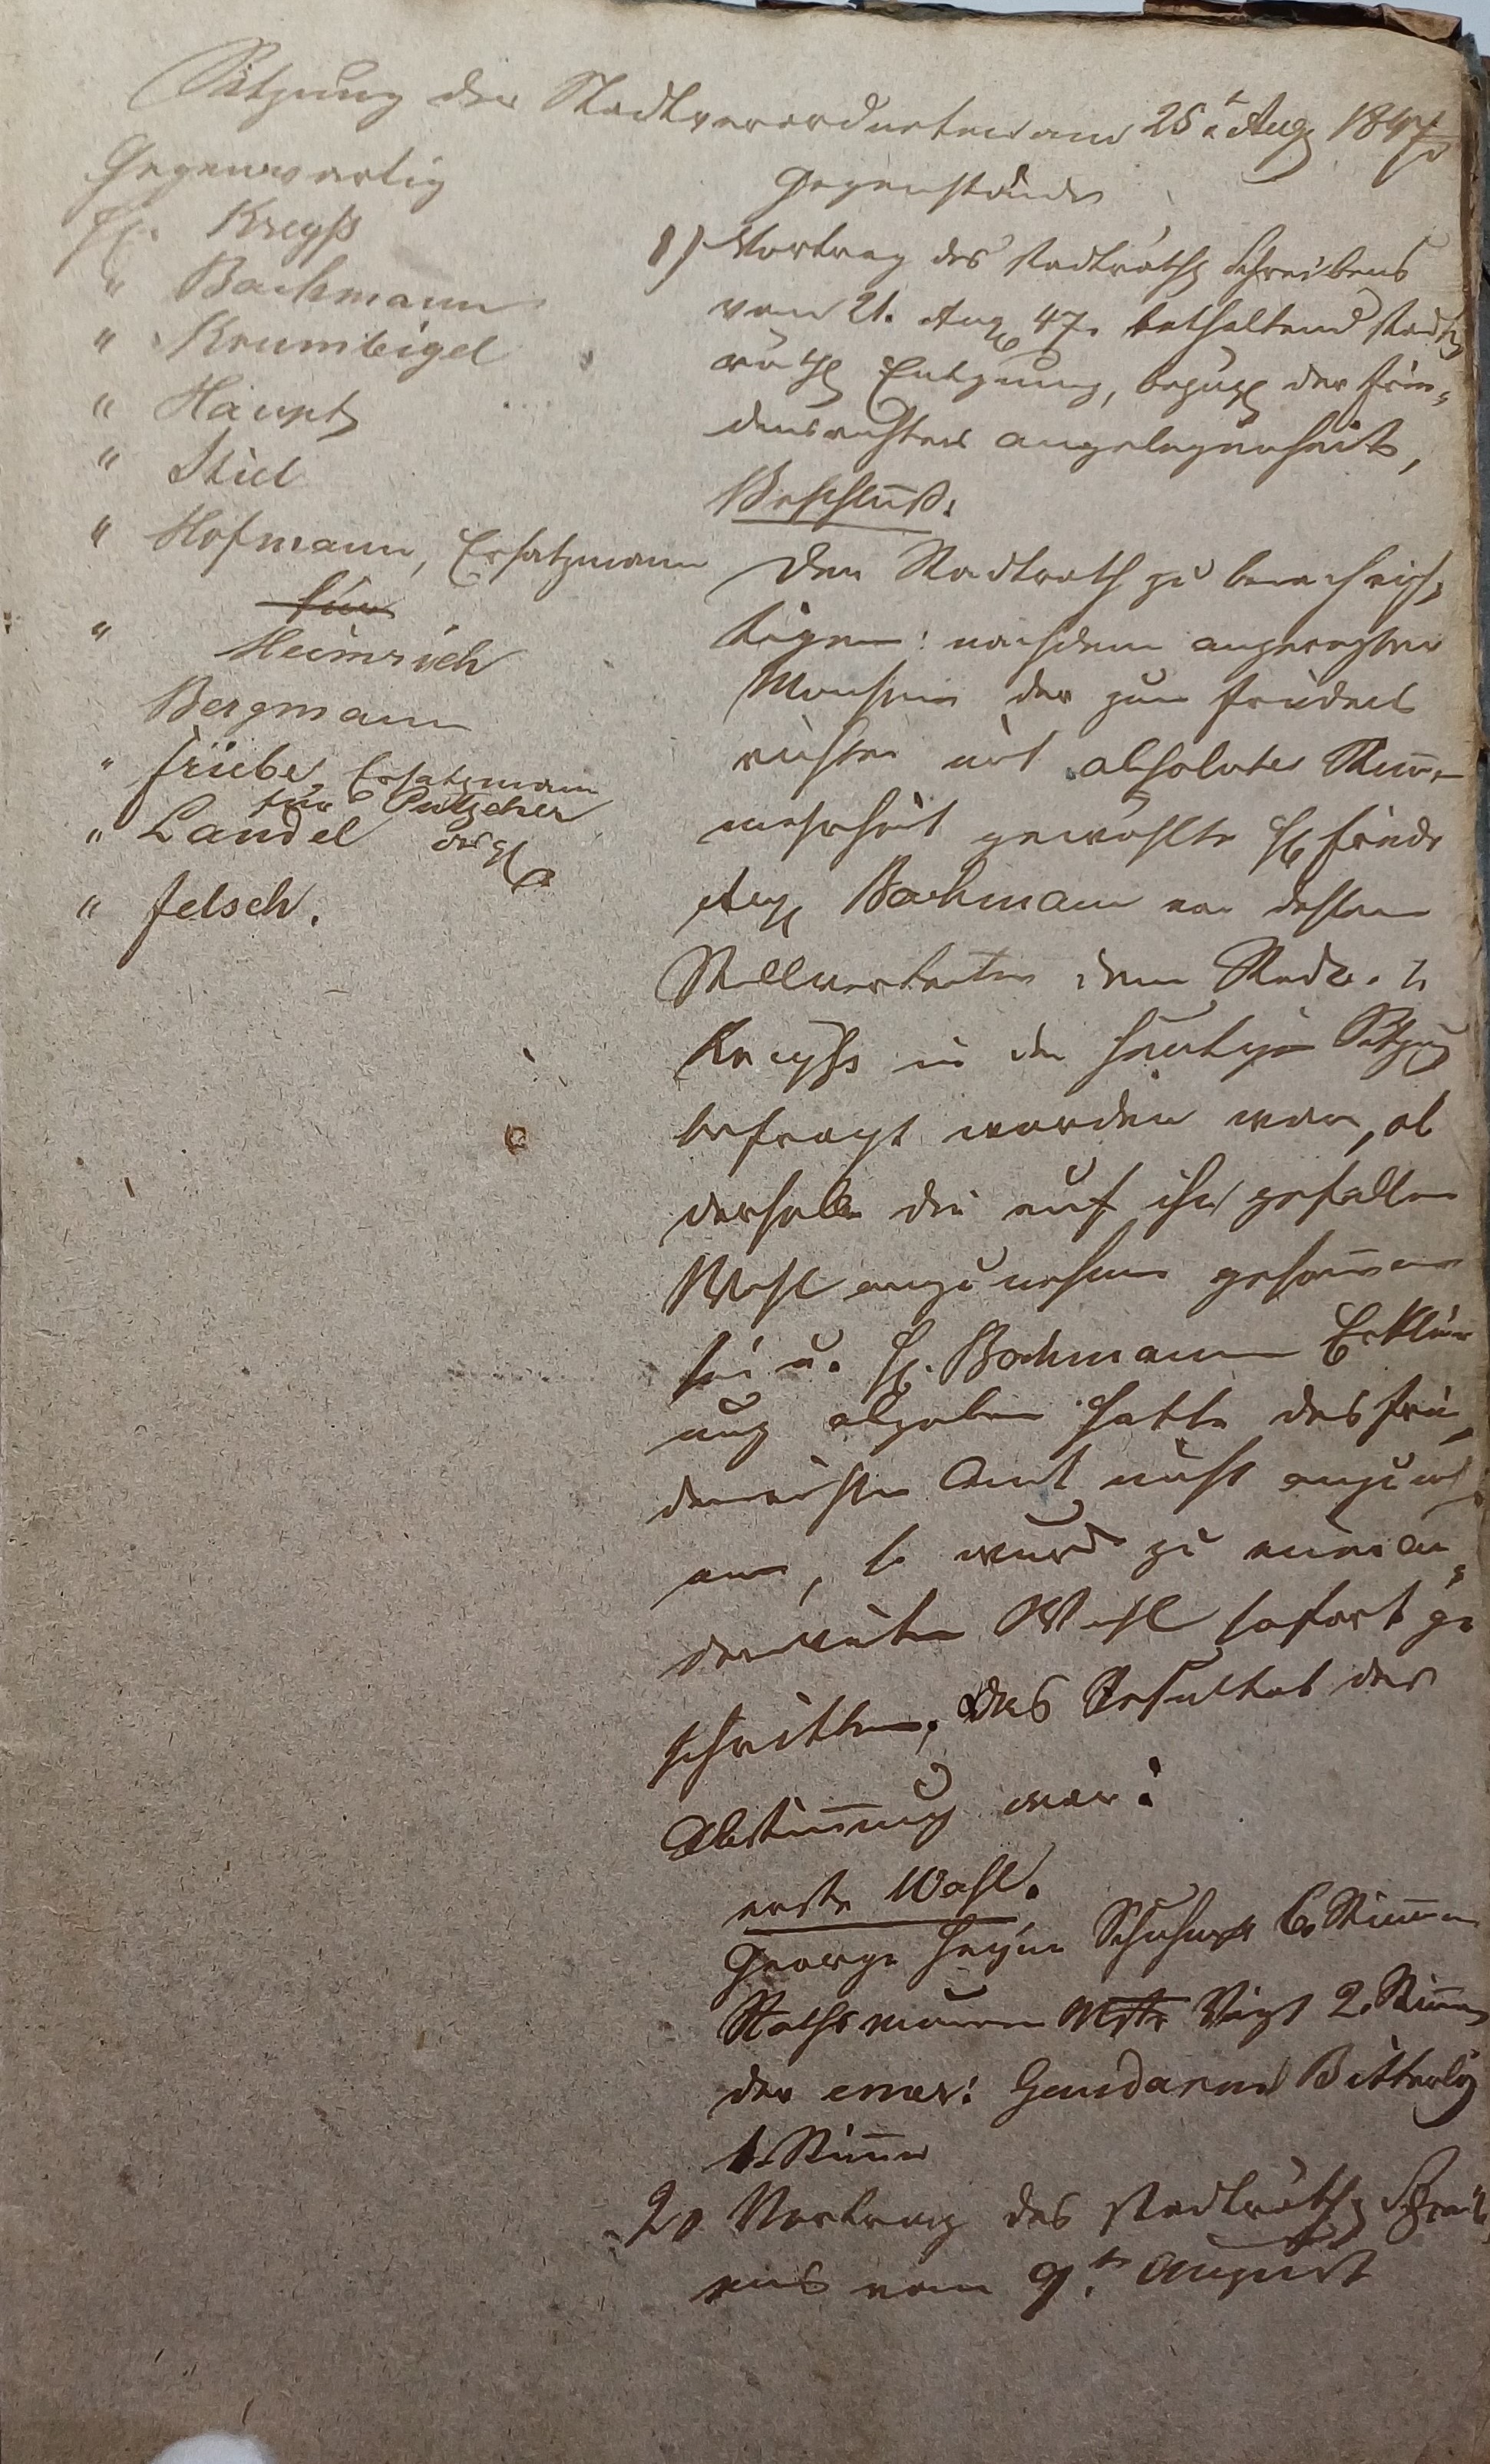 Sitzung der Stadtverordneten am 25t Aug 1847
Gegenwartig
H. Kreyß
" Bachmann
" Krumbeigel
" Haupt
" Stiel
" Hofmann, Ersatzmann
" für
Heimrich
Bergmann
" Friebe, Ersatzmann
für Putzcher
" Landel desgl
" Jelsch.
Gegenstände
1) Vortrag des stadträthl Schreibens
vom 21. Aug 47. enthaltend stadt-
räthl bezügl der Frie-
densrichter angelegenheit,
Beschluß:
Den Stadtrath zu benachrich-
tigen: nachdem angeregter
der zum Friedens
richter mit absoluter Stimm-
mehrheit gewählte H Friedr
Aug Bachmann von dessen
Stellvertreter dem Stadtv.
Kreyßs in der heutigen Sitzung
befragt worden war, ob
derselbe die auf ihn gefallene
Wahl anzunehmen gesonnen
sei u. H. Bachmann Erklär
ung abgeben hatte das Frie-
densrichter Amt nicht anzuneh-
men, so wurde zu einer an-
derweiten Wahl sofort ge
schritten, das Resultat der
Abstimmung war:
erste Wahl.
George Heyne Schuhm 6 Stimmen
Rathsmann Mstr Vigt 2. Stimmen
der emer: Gendarm Bitterlig
1. Stimme
2) Vortrag des stadträthl Schreib-
ens vom 9.t August